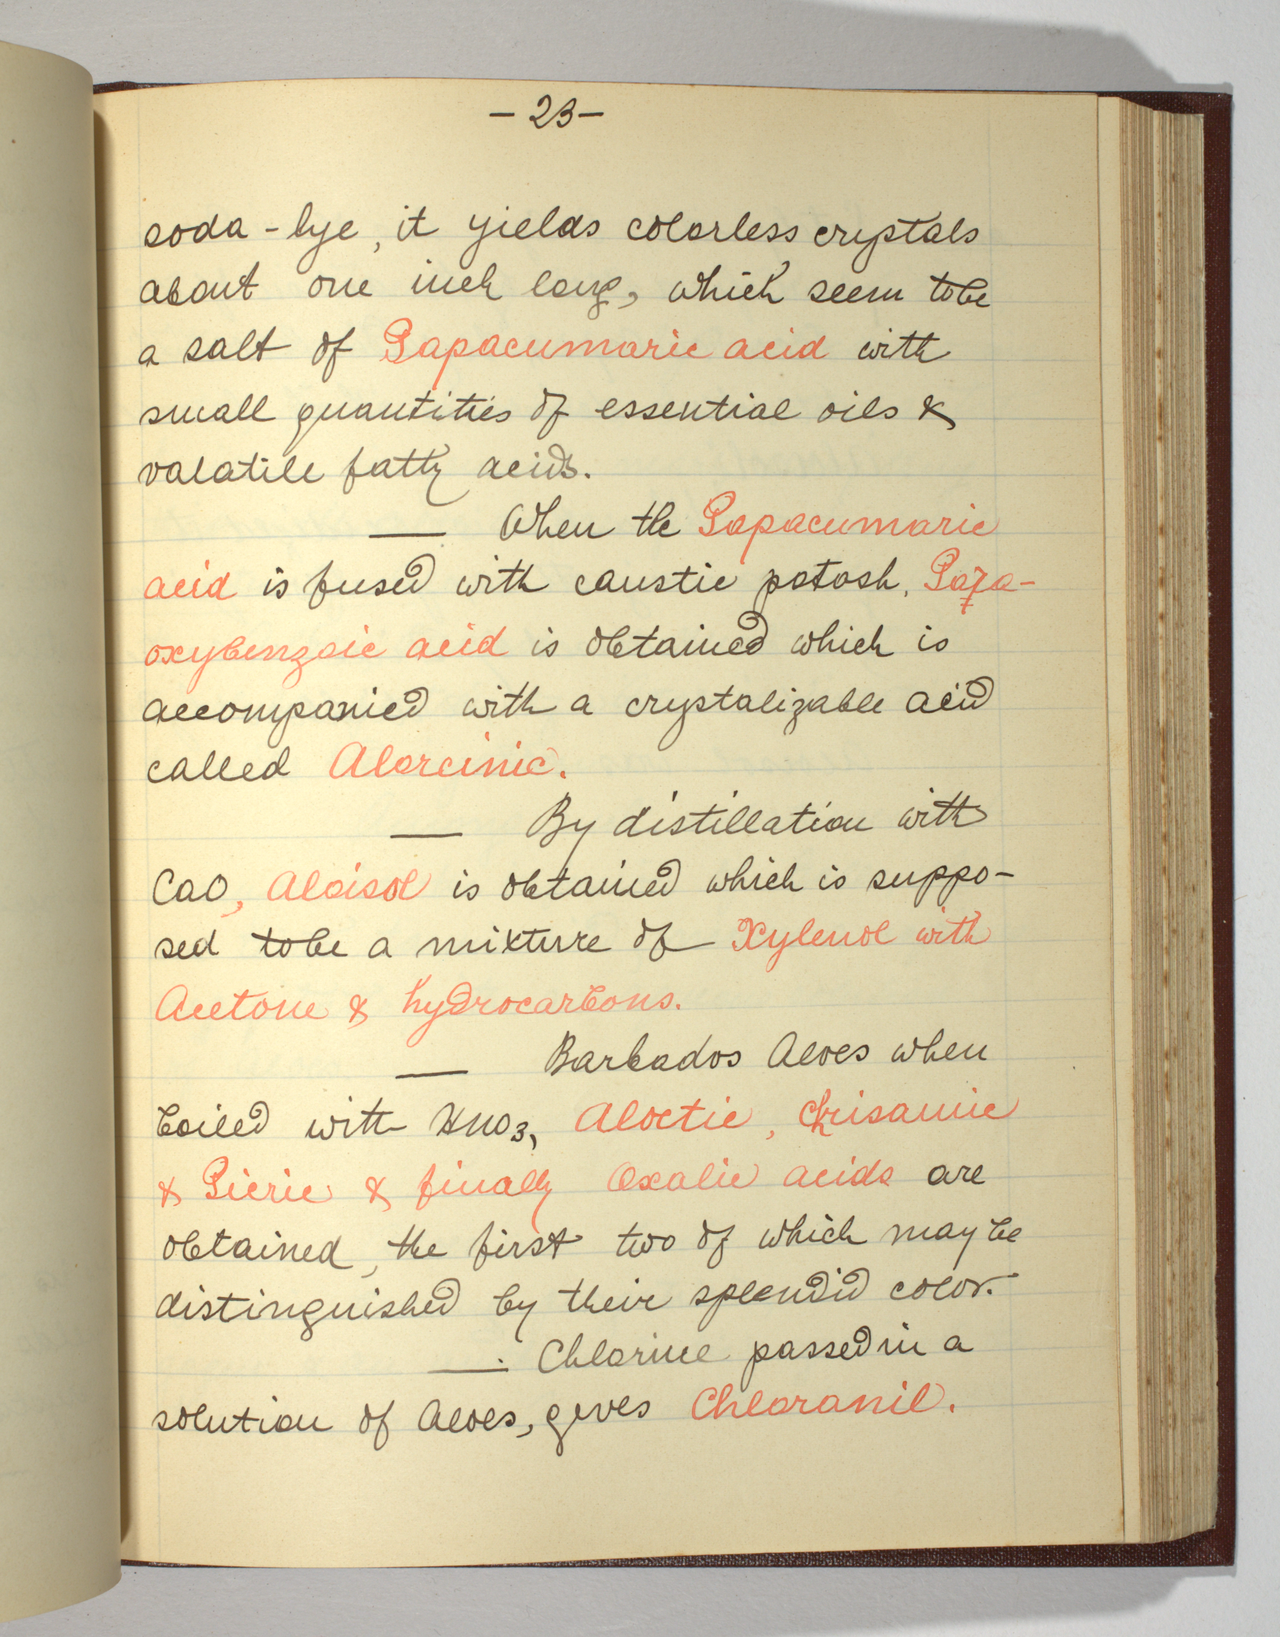 - 23 -
soda-lye, it yields colorless crystals
about one inch long, which seem to be
a salt of Papacumaric acid with
small quantities of essential oils &
valatile fatty acids.
— When the Papacumaric
acid is fused with caustic potash, Para-
oxybenzoic acid is obtained which is
accompanied with a crystalizable acid
called Alorcinic.
— By distillation with
CaO, Aloisol is obtained which is suppo-
sed to be a mixture of Xylenol with
Acetone & hydrocarbons.
— Barbados Aloes when
boiled with HNO3, Aloetic, Chrisamic
& Picric & finally Oxalic acids are
obtained, the first two of which may be
distinguished by their splendid color.
— Chlorine passed in a
solution of Aloes, gives Chloranil.